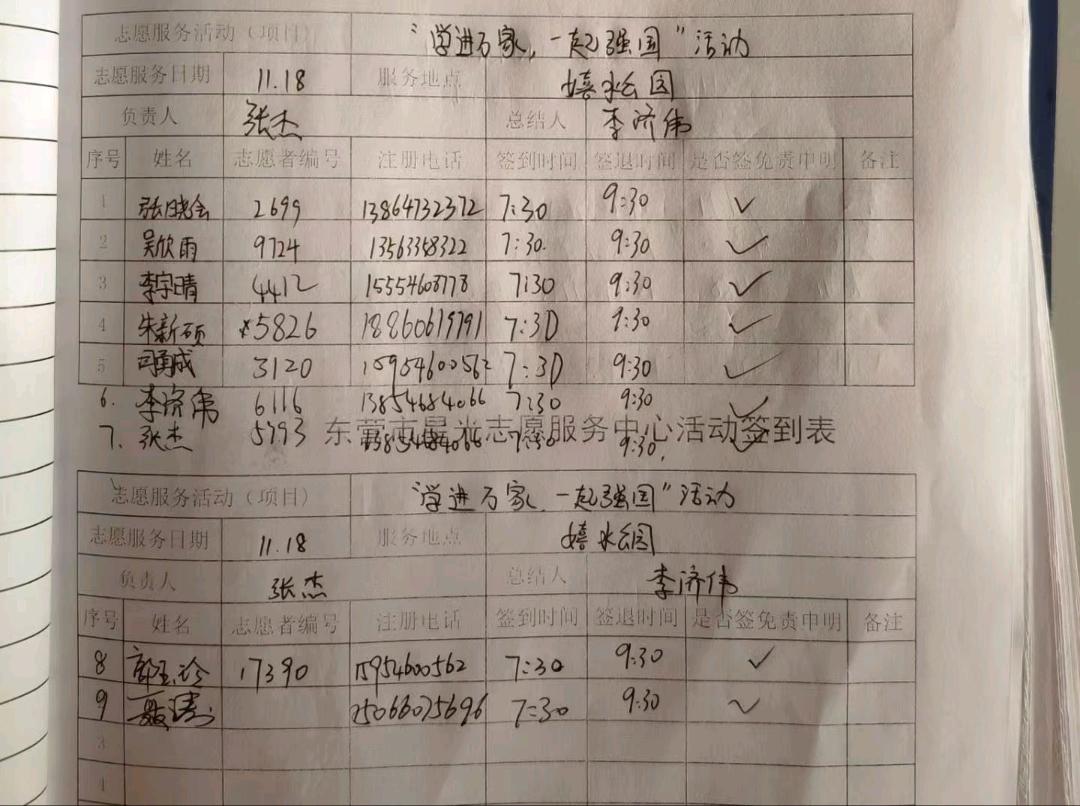 志愿服务活动（项目） “学进万家，一起强国”活动
志愿服务日期 11.18 服务地点 嬉水公园
负责人 张杰 总结人 李济伟
序号 姓名 志愿者编号 注册电话 签到时间 签退时间 是否签免责申明 备注
1 张晓会 2699 13864732372 7:30 9:30 ✓
2 吴欣雨 9724 13563358322 7:30 9:30 ✓
3 李宇晴 4412 15554608778 7:30 9:30 ✓
4 朱新硕 5826 18860619791 7:30 9:30 ✓
5 司勇成 3120 15954600562 7:30 9:30 ✓
6. 李济伟 6116 13854684066 7:30 9:30 ✓
7. 张杰 5793 7:30 9:30 ✓
东营市晨光志愿服务中心活动签到表
志愿服务活动（项目） “学进万家，一起强国”活动
志愿服务日期 11.18 服务地点 嬉水公园
负责人 张杰 总结人 李济伟
序号 姓名 志愿者编号 注册电话 签到时间 签退时间 是否签免责申明 备注
8 郭玉珍 17390 15954600562 7:30 9:30 ✓
9 15066075696 7:30 9:30 ✓
3
4